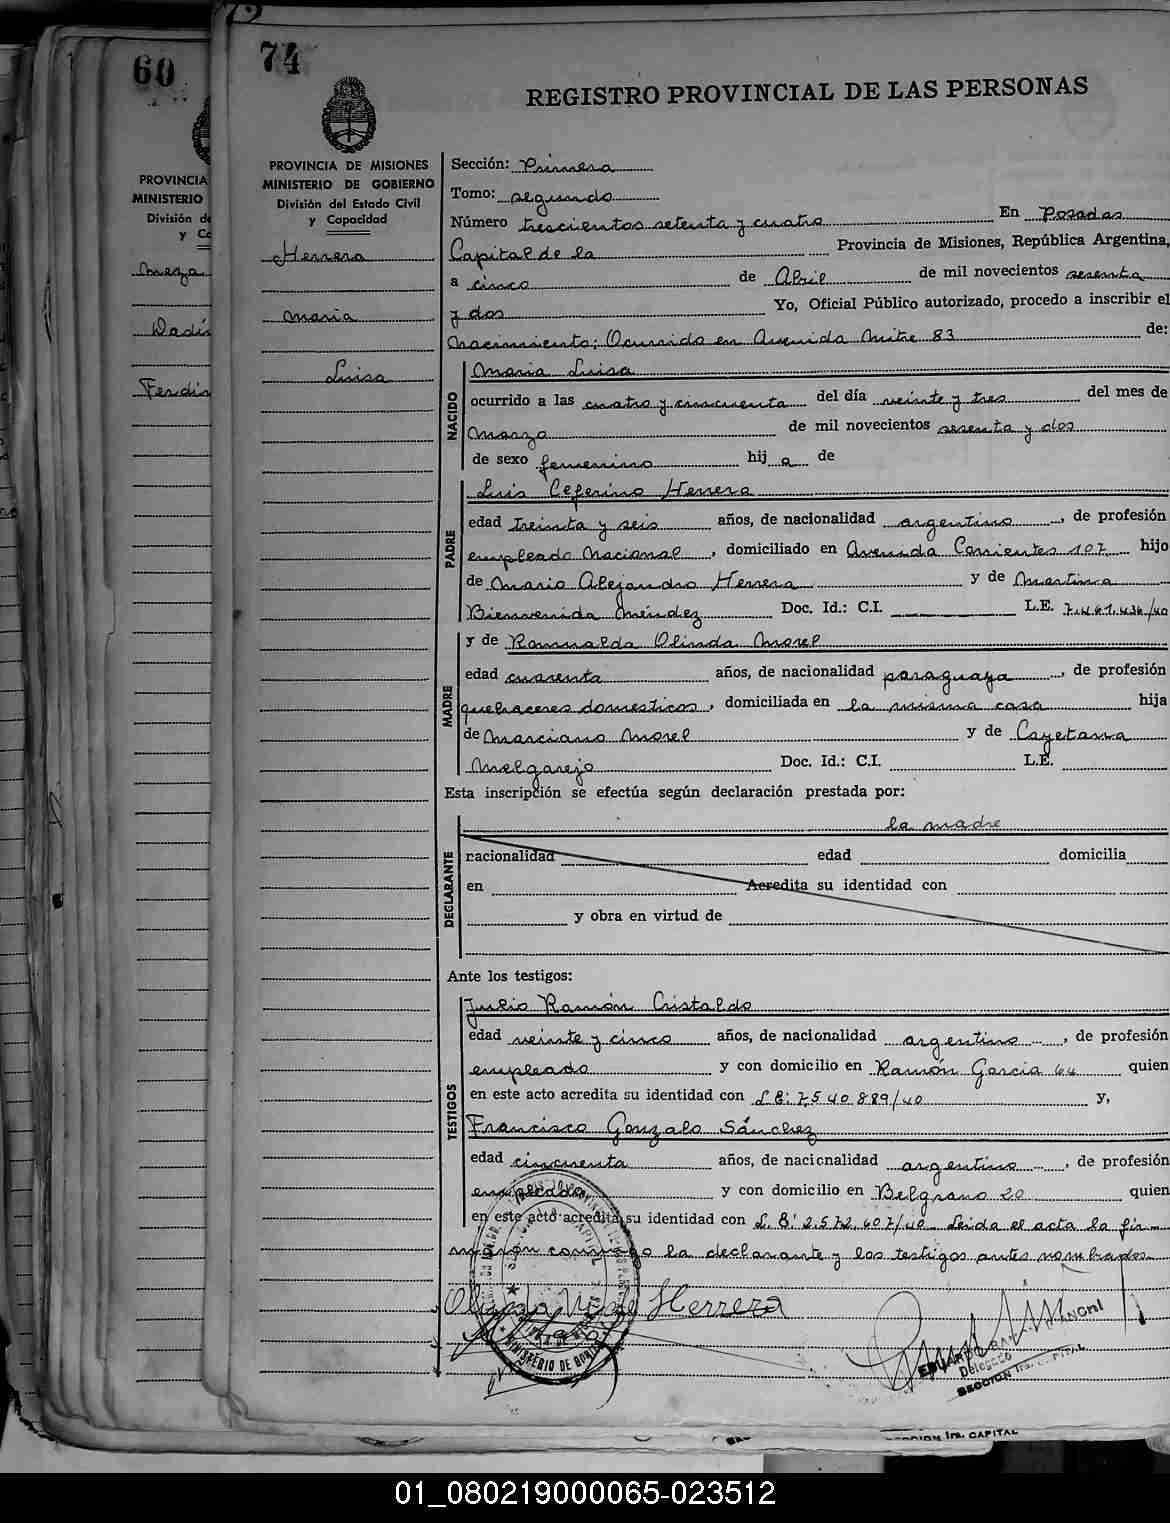 73
60
PROVINCIA
MINISTERIO
División de
y Ca
Meza
Ferdin
74
PROVINCIA DE MISIONES
MINISTERIO DE GOBIERNO
División del Estado Civil
y Capacidad
Herrera
Maria
Luisa
REGISTRO PROVINCIAL DE LAS PERSONAS
Sección: Primera
Tomo: segundo
Número trescientos setenta y cuatro En Posadas
Capital de la Provincia de Misiones, República Argentina,
a cinco de Abril de mil novecientos sesenta
y dos Yo, Oficial Público autorizado, procedo a inscribir el
nacimiento: Ocurrido en Avenida Mitre 83 de:
NACIDO
Maria Luisa
ocurrido a las cuatro y cincuenta del día veinte y tres del mes de
Marzo de mil novecientos sesenta y dos
de sexo femenino hij a de
PADRE
Luis Ceferino Herrera
edad treinta y seis años, de nacionalidad argentino, de profesión
empleado Nacional, domiciliado en Avenida Corrientes 107 hijo
de Mario Alejandro Herrera y de Martina
Bienvenida Méndez Doc. Id.: C.I. L.E. 7.461.434/40
MADRE
y de Romualda Olinda Morel
edad cuarenta años, de nacionalidad paraguaya, de profesión
quehaceres domesticos, domiciliada en la misma casa hija
de Marciano Morel y de Cayetana
Melgarejo Doc. Id.: C.I. L.E.
Esta inscripción se efectúa según declaración prestada por:
DECLARANTE
la madre
nacionalidad edad domicilia
en Acredita su identidad con
y obra en virtud de
Ante los testigos:
TESTIGOS
Julio Ramón Cristaldo
edad veinte y cinco años, de nacionalidad argentino, de profesión
empleado y con domicilio en Ramón Garcia 64 quien
en este acto acredita su identidad con L E: 7.540.889/40 y,
Francisco Gonzalo Sánchez
edad cincuenta años, de nacionalidad argentino, de profesión
empleado y con domicilio en Belgrano 20 quien
en este acto acredita su identidad con L. E: 2.572.607/40 Leida el acta la fir-
maron conmigo la declarante y los testigos antes nombrados.
Olinda Herrera
MINISTERIO DE GOBIERNO
Delegado
SECCION 1ra. CAPITAL
SECCION 1ra. CAPITAL
01_080219000065-023512